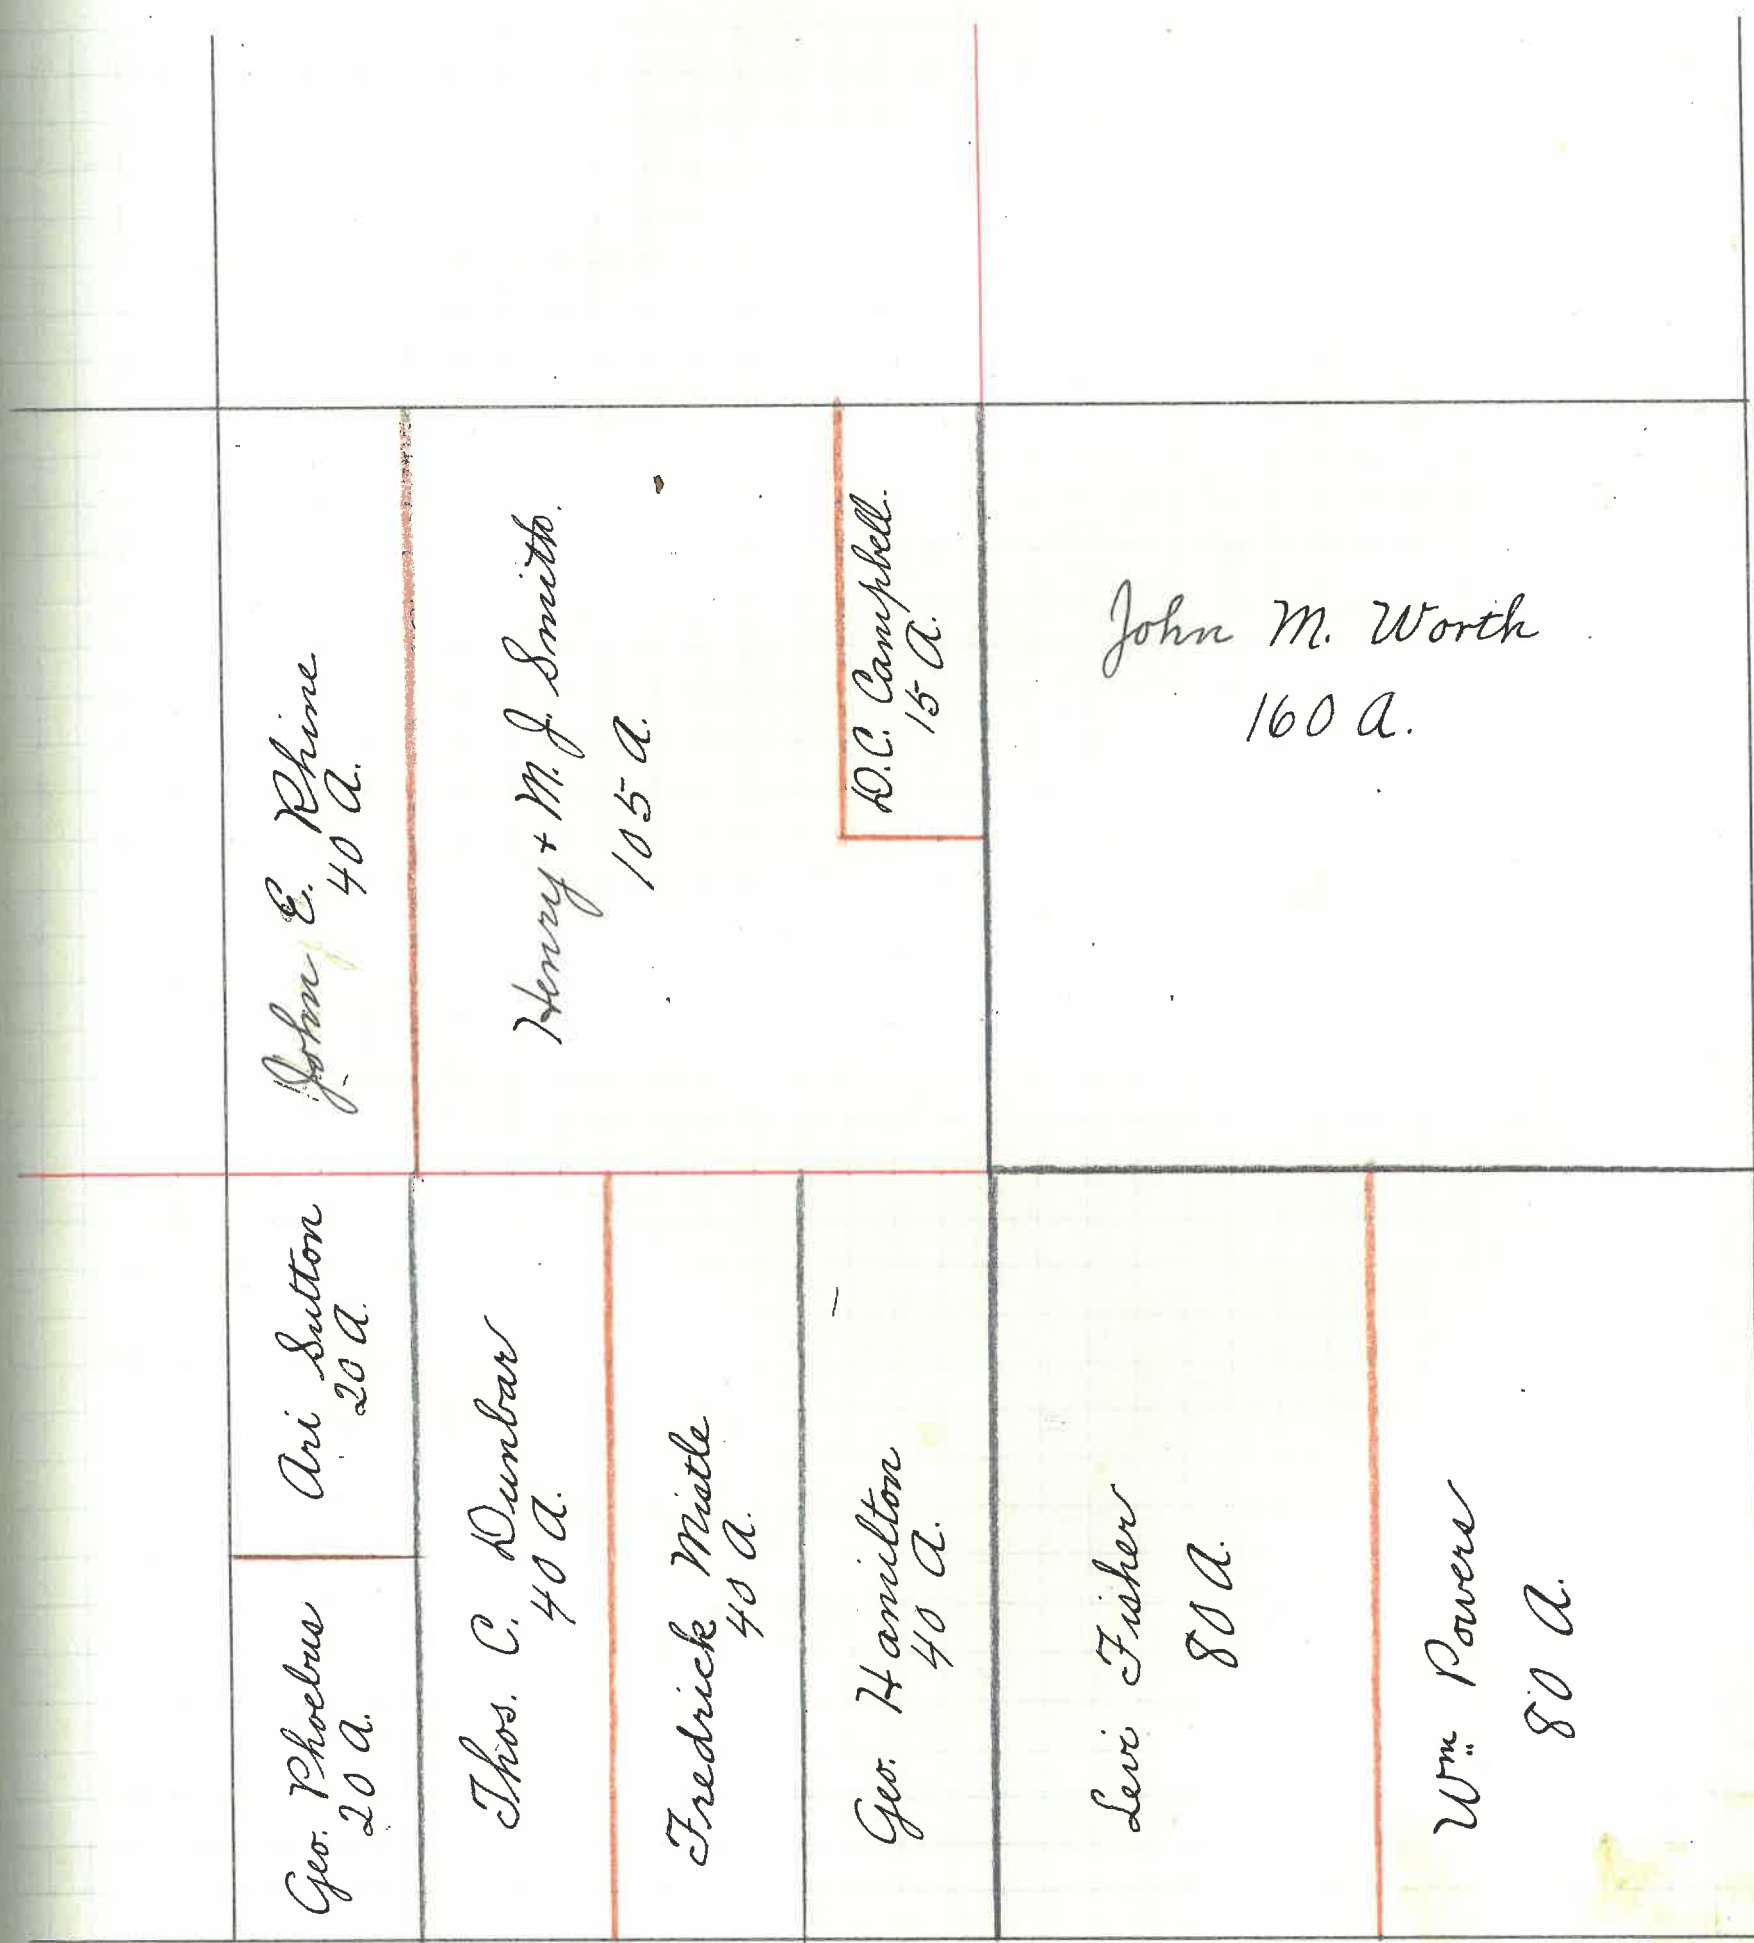 John E. Rhine
40 A.
Henry + M. J. Smith.
105 A.
D.C. Campbell.
15 A.
John M. Worth
160 A.
Geo. Phoebus
20 A.
Ari Sutton
20 A.
Thos. C. Dunbar
40 A.
Fredrick Mistle
40 A.
Geo. Hamilton
40 A.
Levi Fisher
80 A.
Wm Powers
80 A.